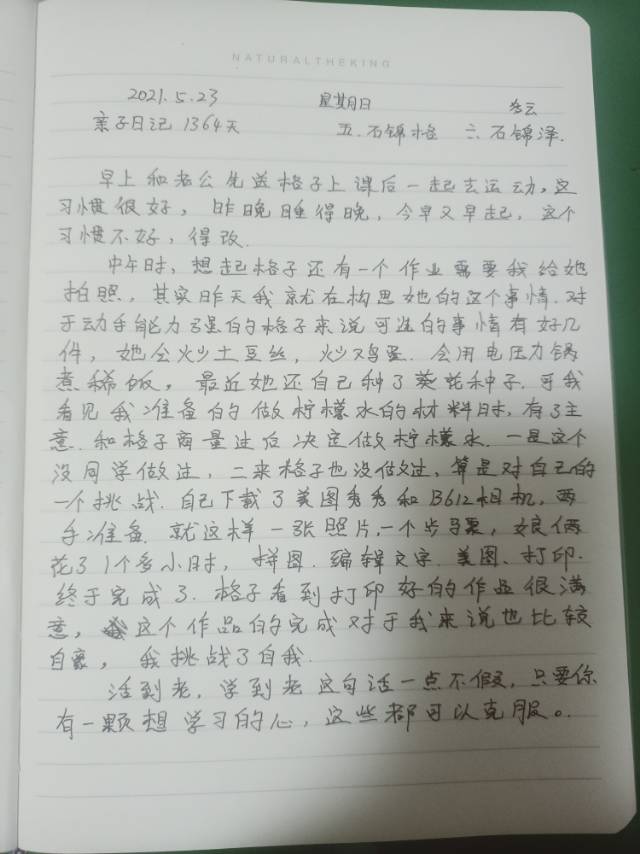 NATURALTHEKING
2021.5.23 星期日 多云
亲子日记 1364天 五.石锦格 六.石锦泽.
早上和老公先送格子上课后一起去运动,这
习惯很好,昨晚睡得晚,今早又早起,这个
习惯不好,得改.
中午时,想起格子还有一个作业需要我给她
拍照,其实昨天我就在构思她的这个事情.对
于动手能力强的格子来说可选的事情有好几
件,她会炒土豆丝,炒鸡蛋.会用电压力锅
煮稀饭,最近她还自己种了葵花种子.可我
看见我准备的做柠檬水的材料时,有了主
意.和格子商量过后决定做柠檬水.一是这个
没同学做过,二来格子也没做过,算是对自己的
一个挑战.自己下载了美图秀秀和B612相机,两
手准备.就这样一张照片,一个步骤,娘俩
花了1个多小时,拼图.编辑文字.美图、打印.
终于完成了.格子看到打印好的作品很满
意,这个作品的完成对于我来说也比较
自豪,我挑战了自我.
活到老,学到老这句话一点不假,只要你
有一颗想学习的心,这些都可以克服。.